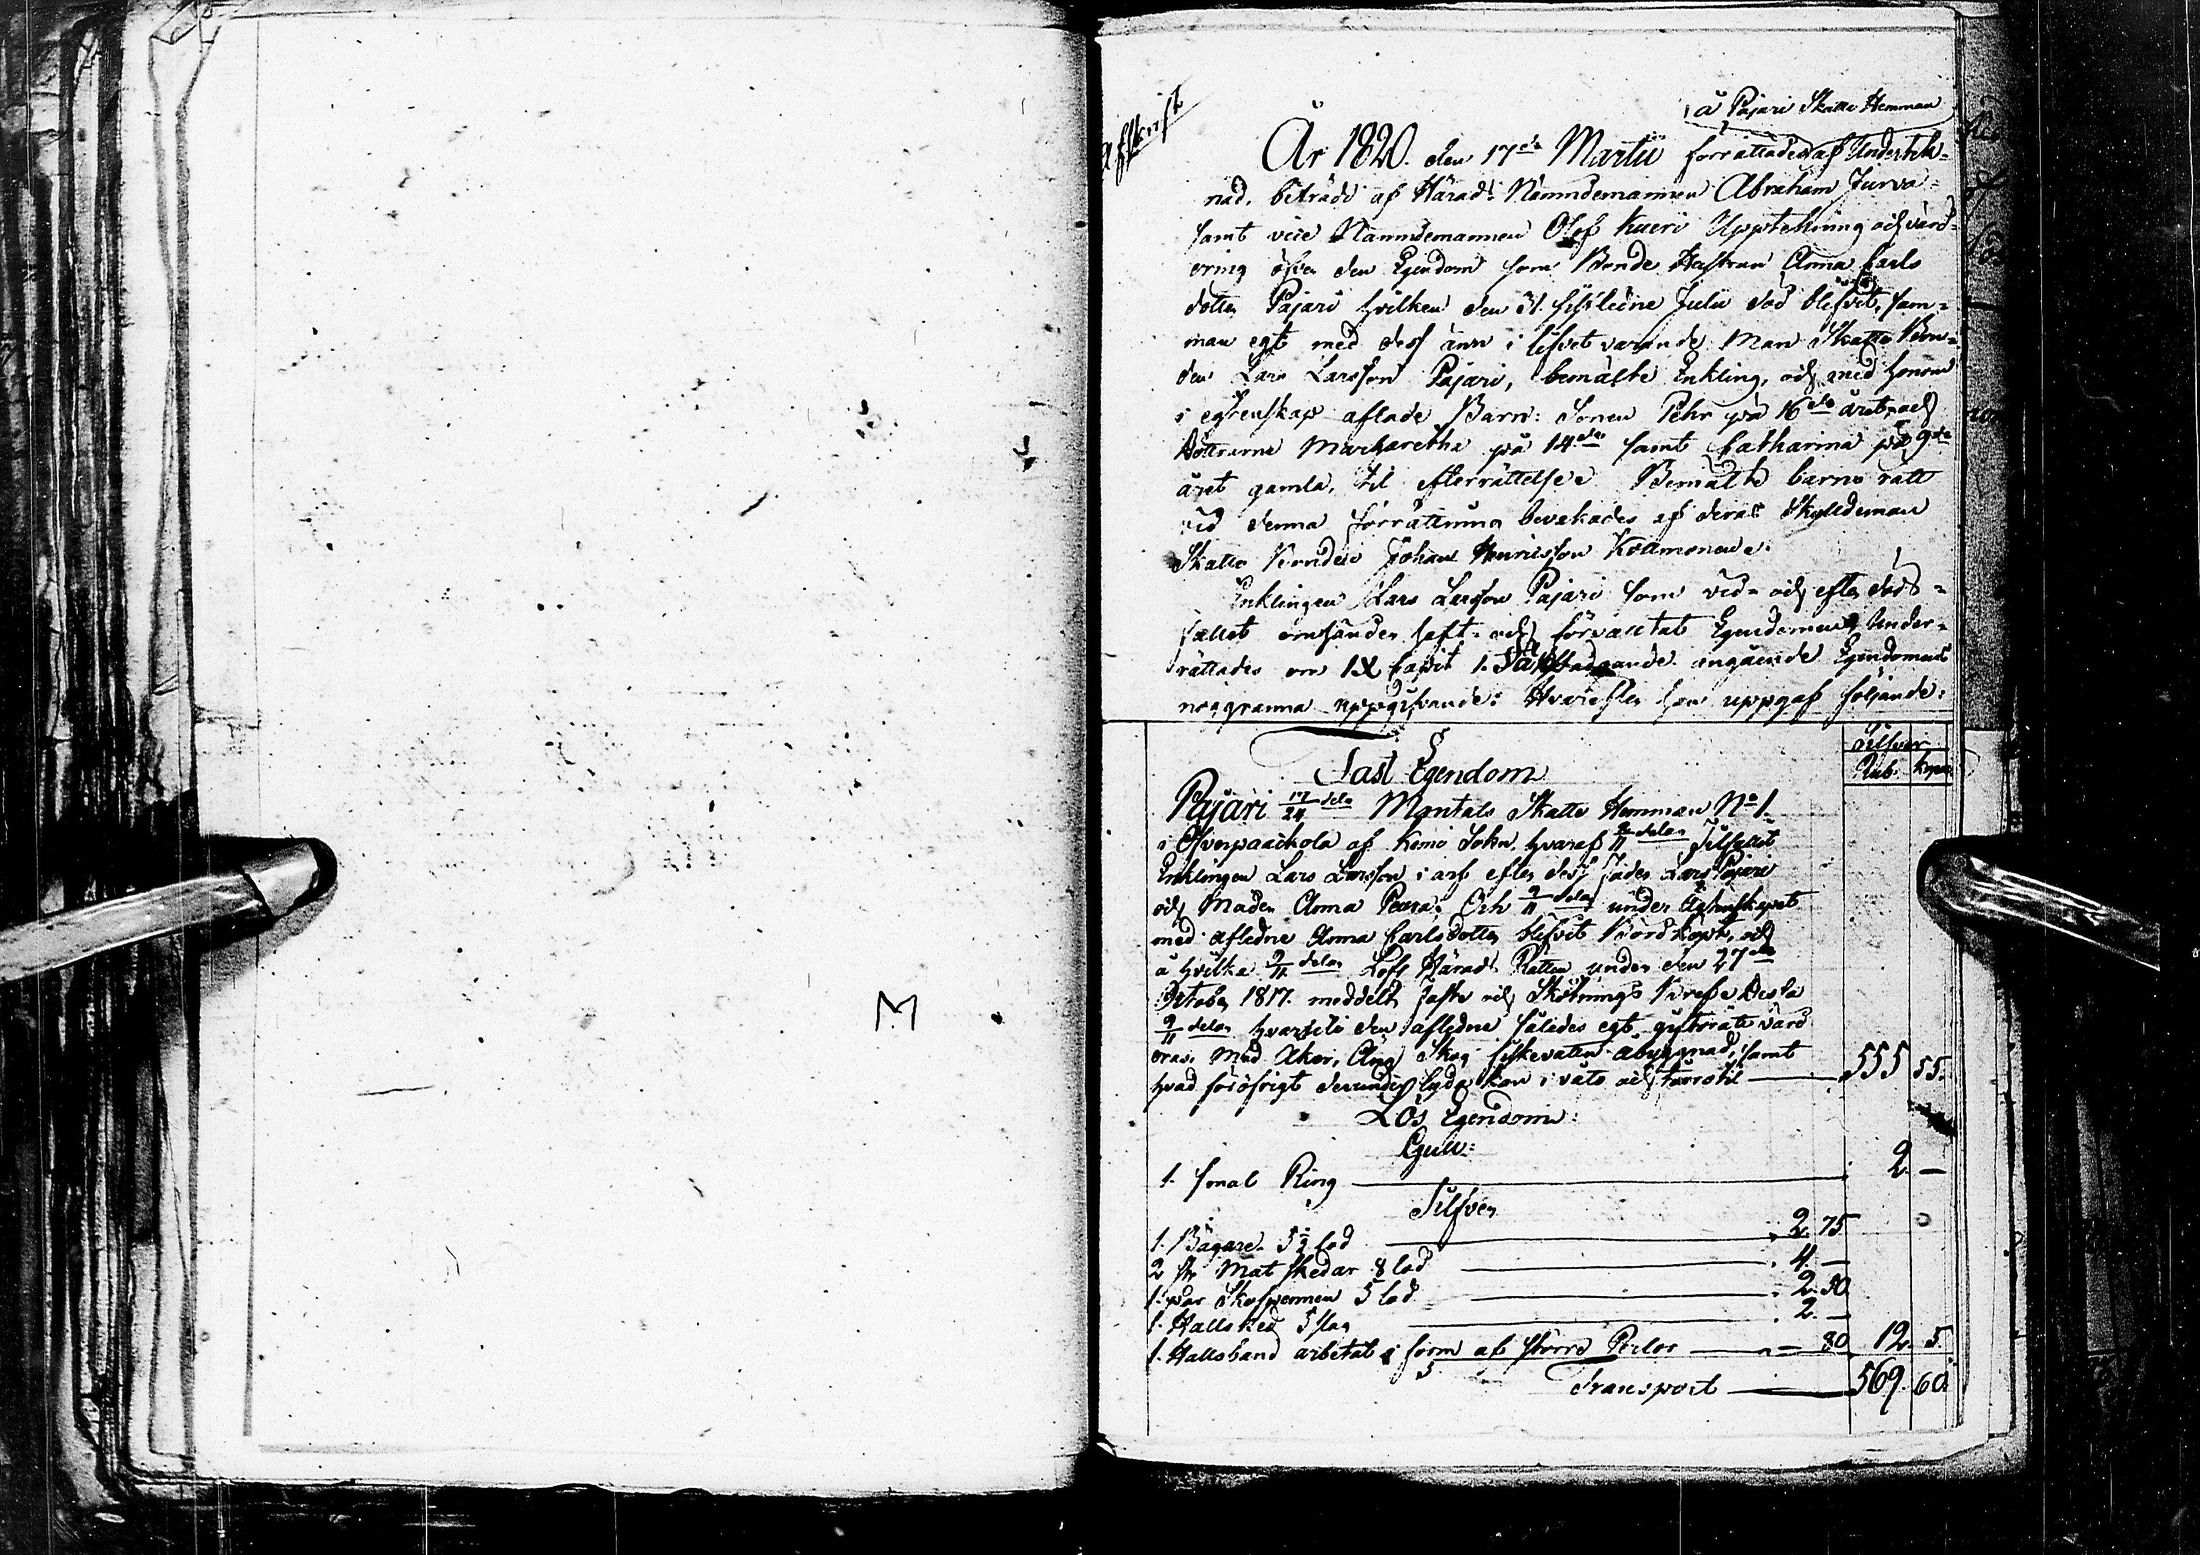 Afskrift
å Pajari Skatte Hemman
År 1820. den 17de Martii förrättades af Underteck-
nad, biträdd af Härads Nämndemannen Abraham Jurva-
samt vice Nämndemannen Olof Kueri Uppteckning och värd-
ering öfver den Egendom som Bonde Hustrun Anna Carls
dotter Pajari hvilken den 31 sistledne Julii död blifvit, sam-
man egt med dess änn i lifvet varande Man Skatte Bon-
den Lars Larsson Pajari, bemälte Enkling, och med honom
i egtenskap aflade Barn: Sonen Pehr på 16de året, och
Döttrarne Margaretha på 14de samt Catharina på 9de
året gamla, til efterrättelse. Bemälte barns rätt
vid denna förrättning bevakades af deras Skyldeman
Skatte Bonden Johan Henricsson
Enklingen Lars Larsson Pajari som vid- och efter döds-
fallet omhänder haft- och förvaltat Egendomen, Under-
rättades om IX Capit 1. angående Egendomens
noggranna uppgifvande: Hvarefter han uppgaf följande:
Silfver
Rub. Kop.
Fast Egendom
Pajari 17/24 dels Mantals Skatte Hemman No 1.
i Öfverpaackola af Kemi Sokn, hvaraf 2/11 delar Tilfallit
Enklingen Lars Larsson i arf efter dess fader Lars Pajari
och Moder Anna Och 9/11 delar under Egtenskapet
med aflidne Anna Carlsdotter blifvit Bördköpt, och
å hvilka 9/11 delar Lofl Härads Rätten under den 27de
October 1817. meddelt faste och Skötnings Bref. Dessa
9/11 delar hvartil den aflidne således egt giftorätt värd
eras. Med Åker, Äng Skog fiskevatten åbyggnad, samt
hvad för öfrigt derunder lyda kan i våto och torro til 555 55.
Lös Egendom:
Gull:
1. smal Ring 2. —
Silfver
1. Bägare 5 1/2 lod 2. 75
2 st Mat skedar 8 lod 4. —
1. par Skospännen 5 lod 2. 50
1. Halls ked 5 2. —
1. Hallsband arbetat i form af större Perlor — 80 12. 5.
Transport 569. 60.
M